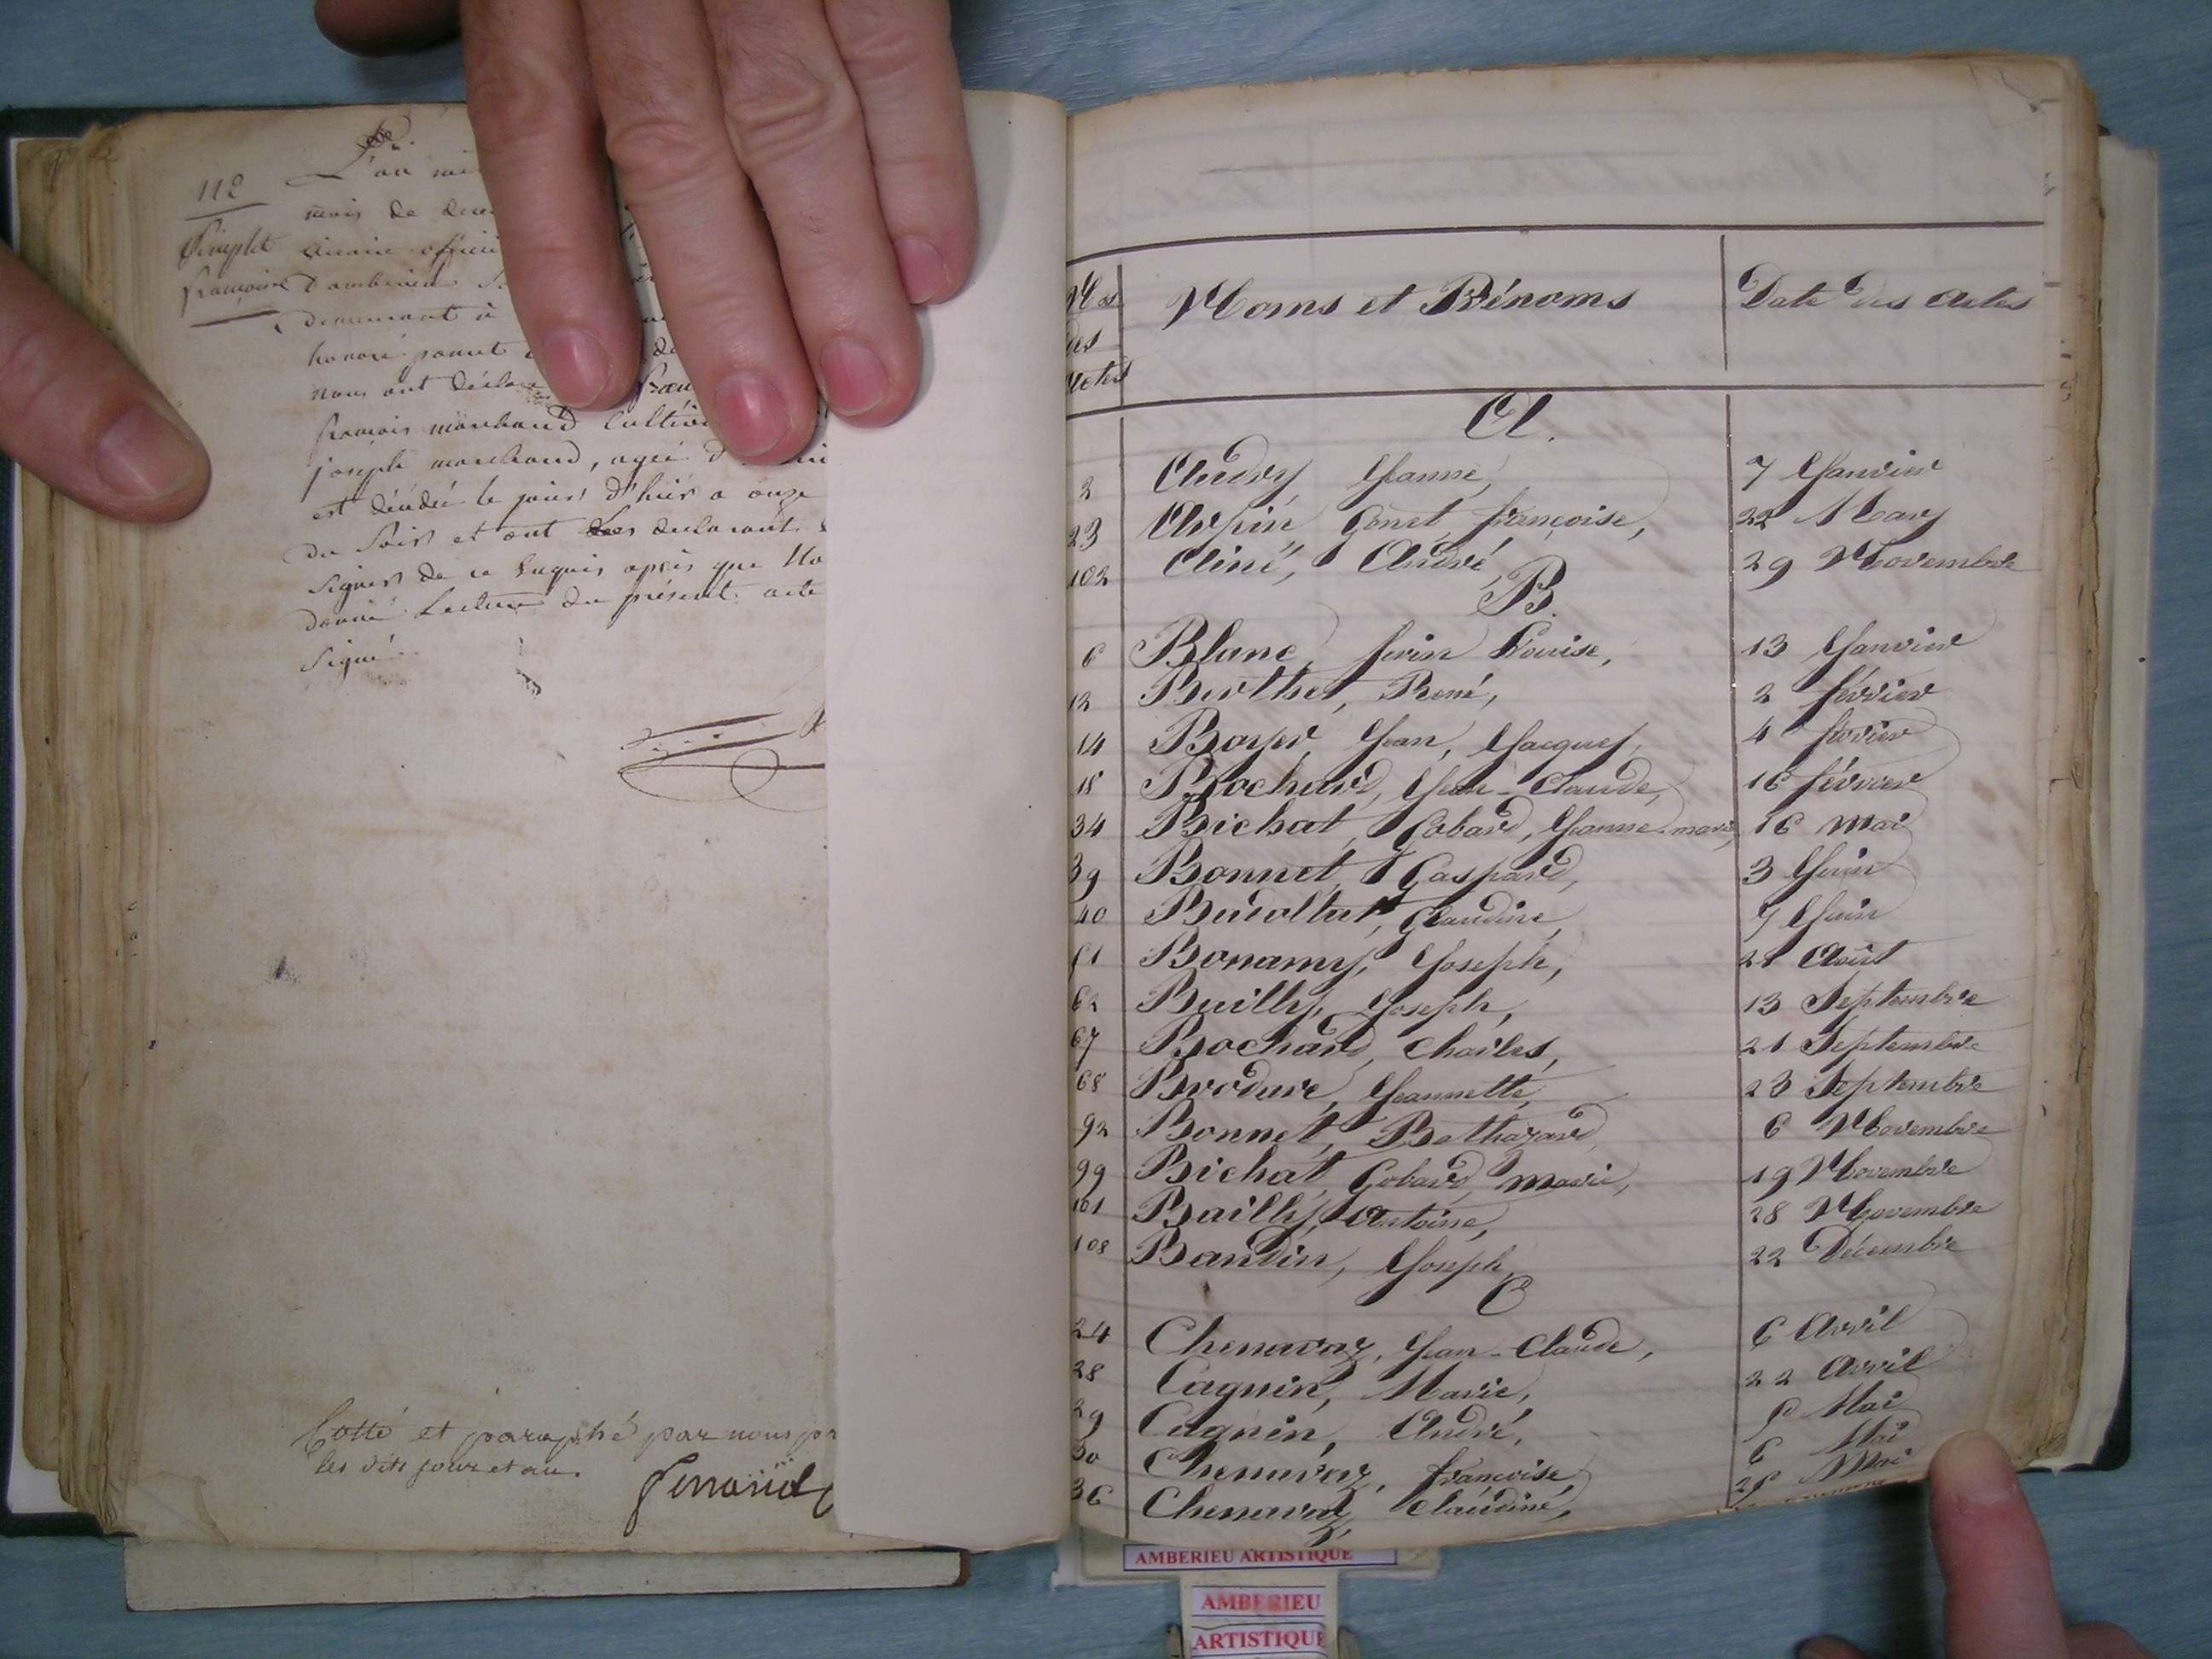 112
L'an mi
mois de
officie
françoise
demeurant à
nous ont décla
françois marchand cultiv
joseph marchand, agée d
est décédée le jour d'hier a onze
du soir et ont les declarant
signer de ce requis après que
donné Lecture du présent acte
Signé
Cotté et paraphé par nous
les dits jour et an.
Nos
des
actes
Noms et Prénoms
Date des actes
A.
2 Audry Jeanne, 7 Janvier
23 Arpin, Gonet, françoise, 22 Mars
102 Aimé, André, 29 Novembre
B.
6 Blanc, Louise, 13 Janvier
12 Berthet, René, 2 février
14 Boyer, Jean, Jacques, 4 février
18 Brochard, Jean-Claude, 16 février
34 Bichat, Gobard, Jeanne-marie, 16 mai
39 Bonnet, Gaspard, 3 Juin
40 Claudine, 7 Juin
Bonamy, Joseph, 21 Août
62 Bailly, Joseph, 13 Septembre
67 Bochard, Charles, 21 Septembre
68 Jeannette, 23 Septembre
92 Bonnet, Bethazard, 6 Novembre
99 Bichat, Gobard, marie, 19 Novembre
101 Bailly, Antoine, 28 Novembre
108 Baudin, Joseph, 22 Décembre
C
24 Chenavaz, Jean-Claude, 6 Avril
28 Cagnin, Marie, 22 Avril
29 Cagnin, André, Mai
30 Chenavaz, françoise, 6 Mai
36 Chenavaz, Claudine, Mai
AMBERIEU ARTISTIQUE
AMBERIEU
ARTISTIQUE